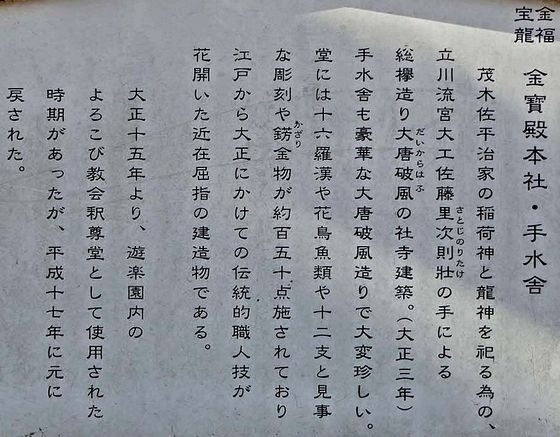 金福
宝龍
金寶殿本社・手水舎
茂木佐平治家の稲荷神と龍神を祀る為の、
立川流宮大工佐藤里次則壯の手による
さとじのりたけ
総欅造り大唐破風の社寺建築。（大正三年）
だいからはふ
手水舎も豪華な大唐破風造りで大変珍しい。
堂には十六羅漢や花鳥魚類や十二支と見事
な彫刻や錺金物が約百五十点施されており
かざり
江戸から大正にかけての伝統的職人技が
花開いた近在屈指の建造物である。
大正十五年より、遊楽園内の
よろこび教会釈尊堂として使用された
時期があったが、平成十七年に元に
戻された。